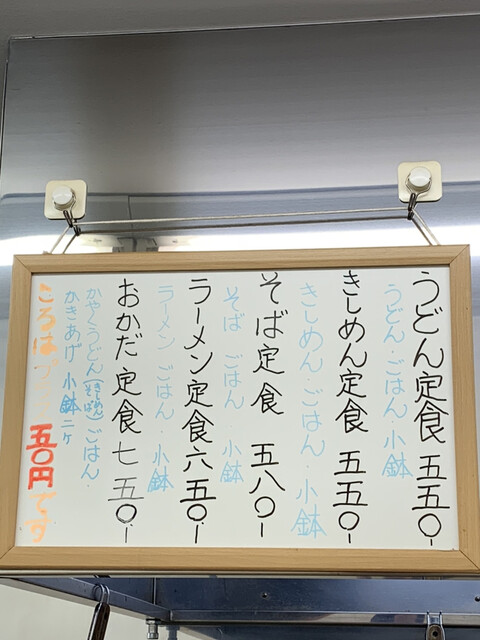 うどん定食 五五〇ー
うどん・ごはん・小鉢
きしめん定食 五五〇ー
きしめん・ごはん・小鉢
そば定食 五八〇ー
そば ごはん 小鉢
ラーメン定食 六五〇ー
ラーメン ごはん・小鉢
おかだ定食 七五〇ー
かやくうどん(きしめん そば)ごはん・
かきあげ 小鉢二ケ
ころはプラス五〇円です